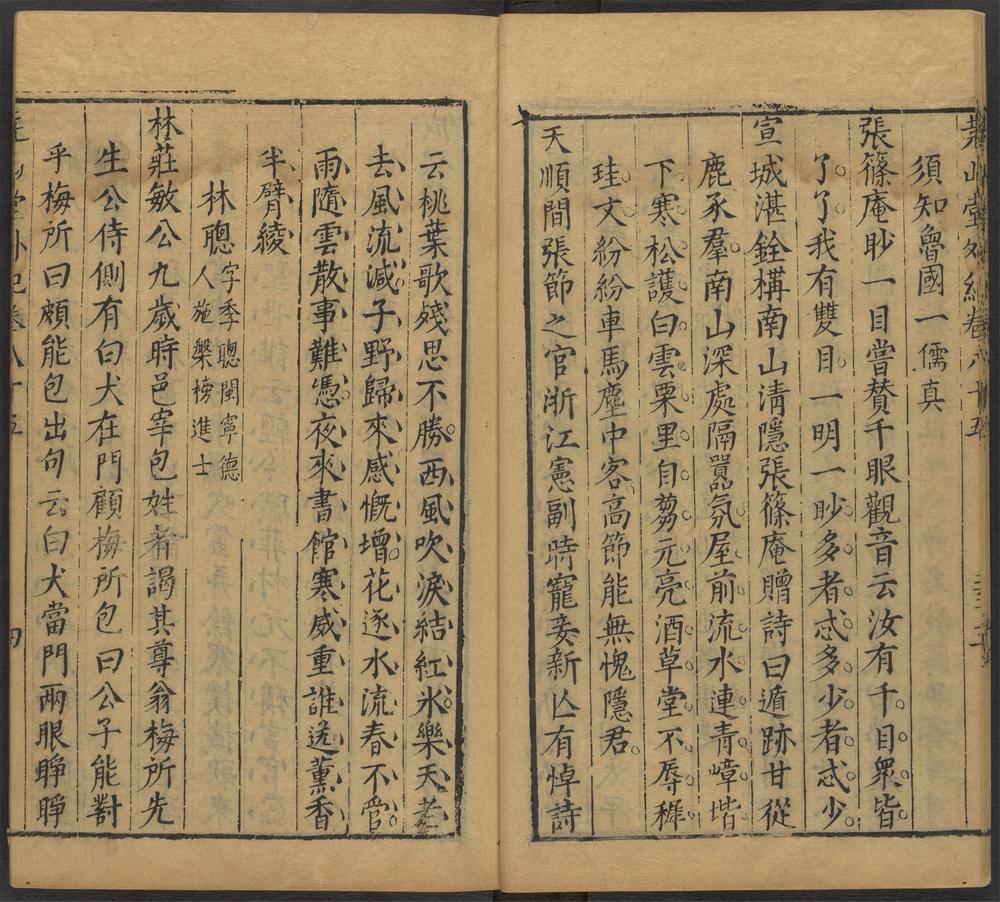 堯山堂外紀卷八十五
須知魯國一儒真
張篠庵眇一目嘗贊千眼觀音云汝有千目衆皆
了了我有雙目一明一眇多者忒多少者忒少
宣城湛銓構南山清隱張篠庵贈詩曰遁跡甘從
鹿豕羣南山深處隔囂氛屋前流水連青嶂堦
下寒松護白雲栗里自芻元亮酒草堂不辱穉
珪文紛紛車馬塵中客高節能無愧隱君
天順間張節之官浙江憲副時寵妾新亾有悼詩
云桃葉歌殘思不勝西風吹淚結紅氷樂天老
去風流減子野歸來感慨增花逐水流春不管
雨隨雲散事難憑夜來書館寒威重誰送薰香
半臂綾
林聰字季聰閩寧德
人施槃榜進士
林莊敏公九歲時邑宰包姓者謁其尊翁梅所先
生公侍側有白犬在門顧梅所包曰公子能對
乎梅所曰頗能包出句云白犬當門兩眼睜睜
堯山堂外紀卷八十五 四